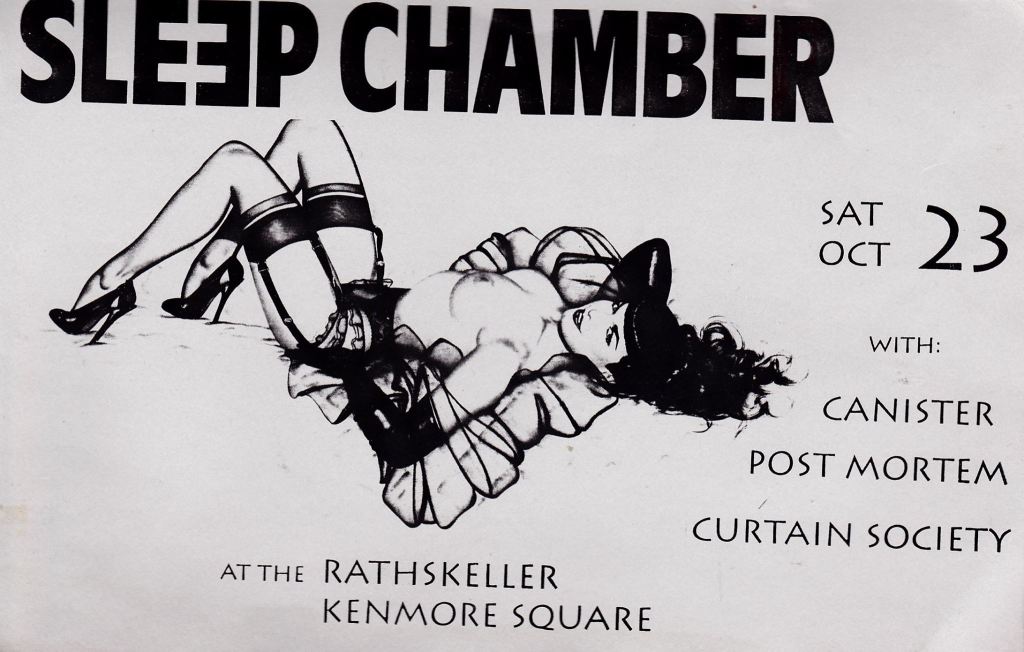 SLEEP CHAMBER
SAT
OCT 23
WITH:
CANISTER
POST MORTEM
CURTAIN SOCIETY
AT THE RATHSKELLER
KENMORE SQUARE